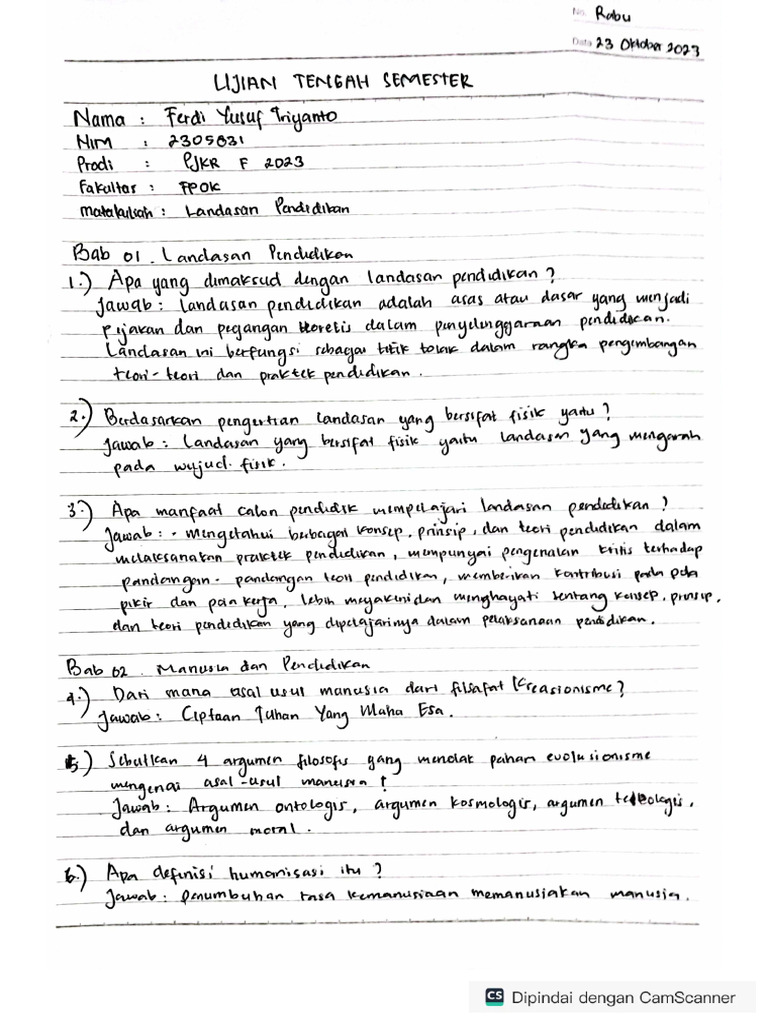 No. Rabu
Date 23 Oktober 2023
UJIAN TENGAH SEMESTER
Nama : Ferdi Yusuf Triyanto
NIM : 2305831
Prodi : PJKR F 2023
Fakultas : FPOK
Matakuliah : Landasan Pendidikan
Bab 01. Landasan Pendidikan
1.) Apa yang dimaksud dengan landasan pendidikan ?
Jawab : landasan pendidikan adalah asas atau dasar yang menjadi
pijakan dan pegangan teoretis dalam penyelenggaraan pendidikan.
Landasan ini berfungsi sebagai titik tolak dalam rangka pengembangan
teori-teori dan praktek pendidikan.
2.) Berdasarkan pengertian landasan yang bersifat fisik yaitu ?
Jawab : Landasan yang bersifat fisik yaitu landasan yang mengarah
pada wujud fisik.
3.) Apa manfaat calon pendidik mempelajari landasan pendidikan ?
Jawab : - mengetahui berbagai konsep, prinsip, dan teori pendidikan dalam
melaksanakan praktek pendidikan, mempunyai pengenalan kritis terhadap
pandangan-pandangan teori pendidikan, memberikan kontribusi pada pola
pikir dan pola kerja, lebih meyakini dan menghayati tentang konsep, prinsip,
dan teori pendidikan yang dipelajarinya dalam pelaksanaan pendidikan.
Bab 02. Manusia dan Pendidikan
4.) Dari mana asal usul manusia dari filsafat Kreasionisme?
Jawab : Ciptaan Tuhan Yang Maha Esa.
5.) Sebutkan 4 argumen filosofis yang menolak paham evolusionisme
mengenai asal-usul manusia !
Jawab : Argumen ontologis, argumen kosmologis, argumen teleologis,
dan argumen moral.
6.) Apa definisi humanisasi itu ?
Jawab : penumbuhan rasa kemanusiaan memanusiakan manusia.
CS Dipindai dengan CamScanner